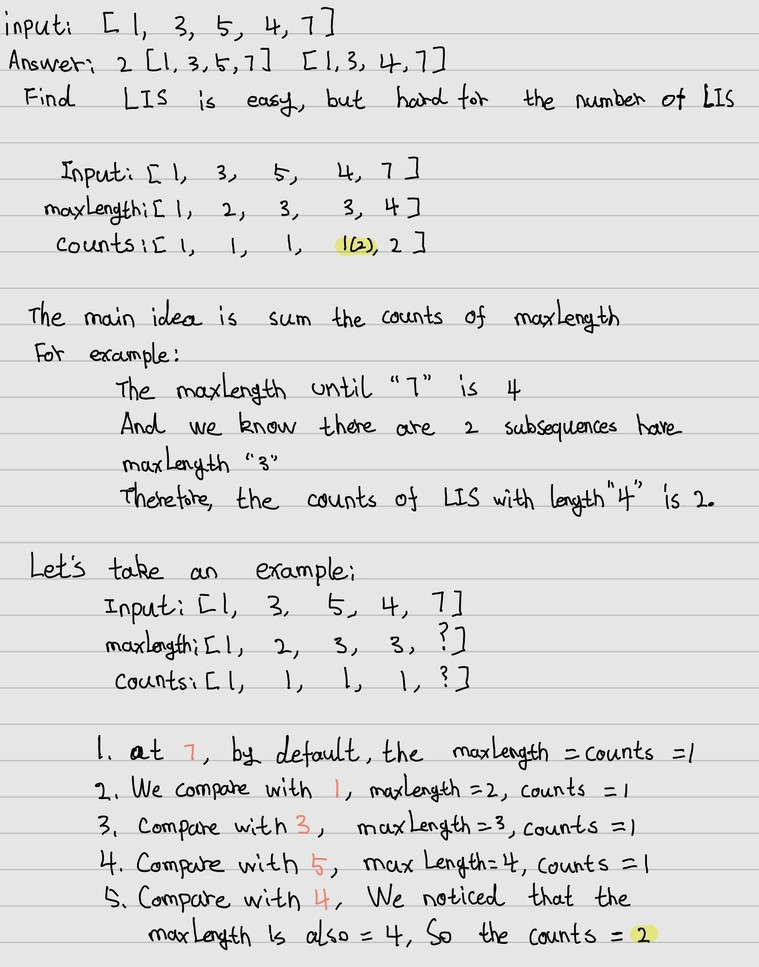 input: [ 1, 3, 5, 4, 7 ]
Answer: 2 [1, 3, 5, 7] [1, 3, 4, 7]
Find LIS is easy, but hard for the number of LIS
Input: [ 1, 3, 5, 4, 7 ]
maxLength: [ 1, 2, 3, 3, 4 ]
counts: [ 1, 1, 1, 1(2), 2 ]
The main idea is sum the counts of maxLength
For example:
The maxLength until "7" is 4
And we know there are 2 subsequences have
maxLength "3"
Therefore, the counts of LIS with length "4" is 2.
Let's take an example:
Input: [1, 3, 5, 4, 7]
maxlength: [1, 2, 3, 3, ?]
counts: [1, 1, 1, 1, ?]
1. at 7, by default, the maxLength = counts = 1
2. We compare with 1, maxLength = 2, counts = 1
3. Compare with 3, maxLength = 3, counts = 1
4. Compare with 5, max Length = 4, counts = 1
5. Compare with 4, We noticed that the
maxLength is also = 4, So the counts = 2